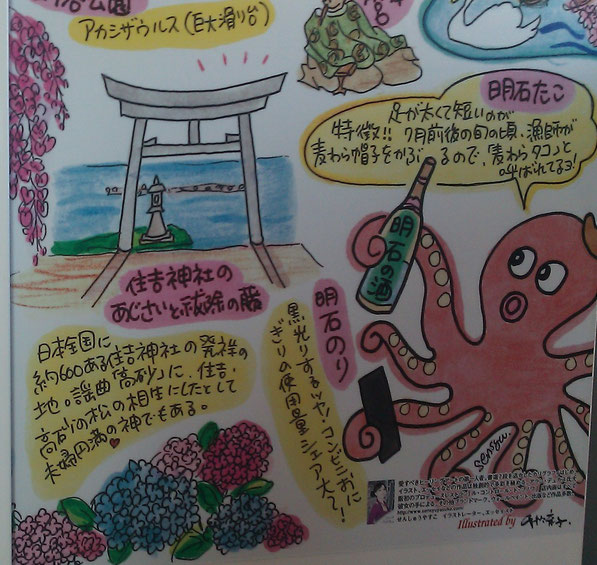 公園
アカシザウルス（巨大滑り台）
宮
明石たこ
足が太くて短いのが
特徴!! 7月前後の旬の頃、漁師が
麦わら帽子をかぶるので、麦わらタコと
呼ばれてるヨ!
明石の酒
住吉神社の
あじさいと祓除の藤
日本全国に
約600ある住吉神社の発祥の
地。謡曲「高砂」に、住吉・
高砂の松の相生にしたとして
夫婦円満の神でもある。
明石のり
黒光りするツヤ!コンビニおに
ぎりの使用量シェア大で!
sensyu.
せんしゅうやすこ イラストレーター、エッセイスト
Illustrated by